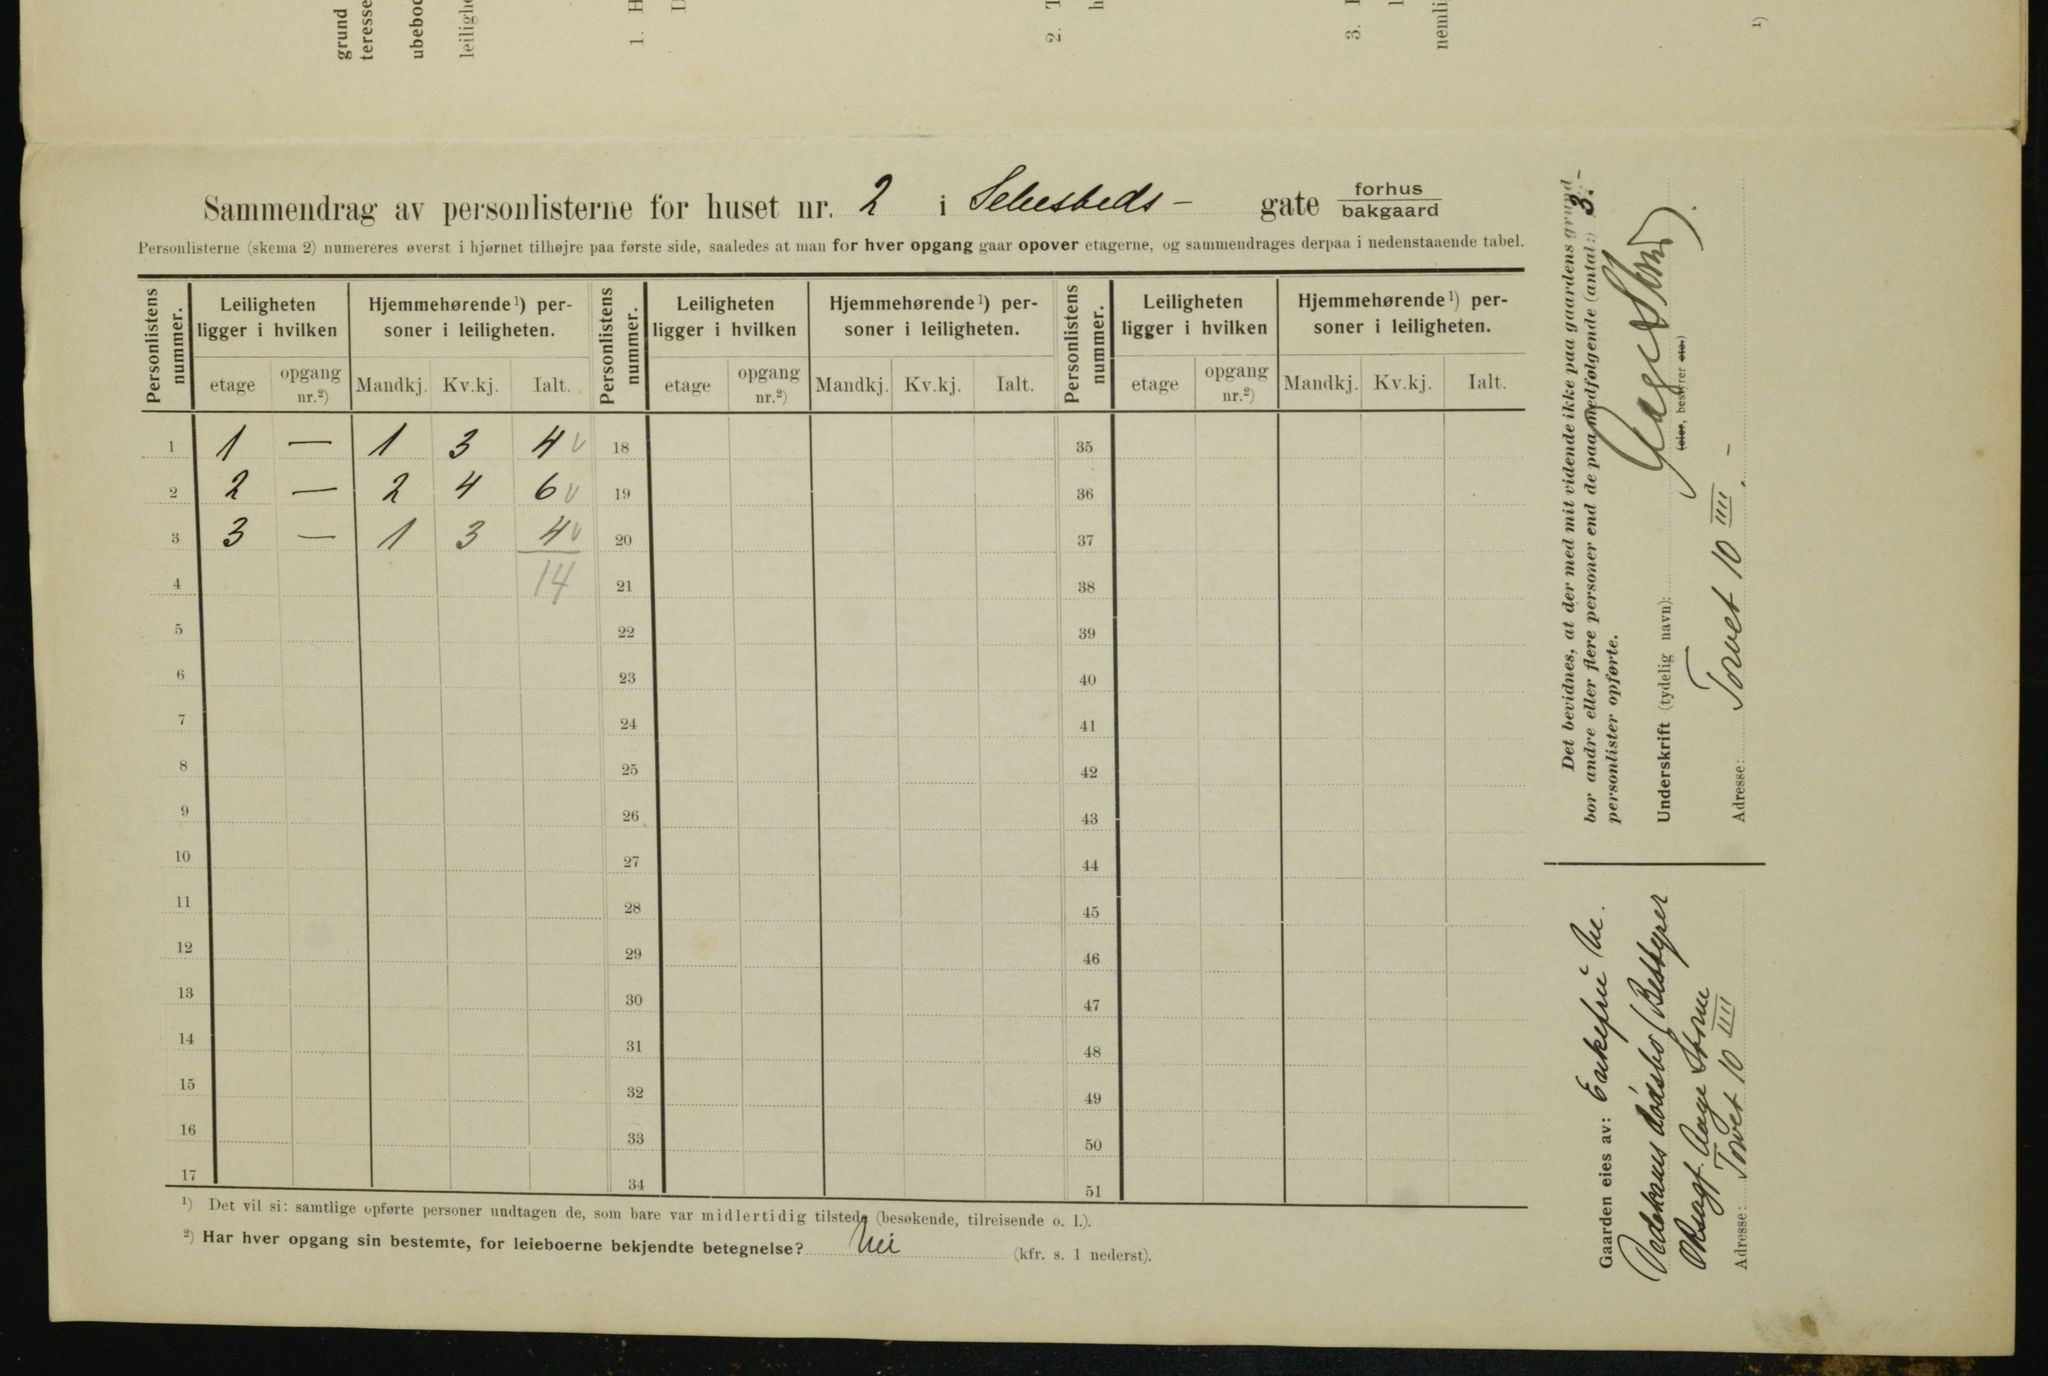 grund
teresse
ubeboe
leilighe
1. H
D
2. T
h
3.
nemli
1)
Sammendrag av personlisterne for huset nr. 2 i Selesbeds- gate forhus
bakgaard
Personlisterne (skema 2) numereres øverst i hjørnet tilhøjre paa første side, saaledes at man for hver opgang gaar opover etagerne, og sammendrages derpaa i nedenstaaende tabel.
Personlistens nummer. Leiligheten ligger i hvilken Hjemmehørende¹) personer i leiligheten. Personlistens nummer. Leiligheten ligger i hvilken Hjemmehørende¹) personer i leiligheten. Personlistens nummer. Leiligheten ligger i hvilken Hjemmehørende¹) personer i leiligheten.
etage opgang nr.²) Mandkj. Kv.kj. Ialt. etage opgang nr.²) Mandkj. Kv.kj. Ialt. etage opgang nr.²) Mandkj. Kv.kj. Ialt.
1 1 — 1 3 4 v 18 35
2 2 — 2 4 6 v 19 36
3 3 — 1 3 4 v 20 37
4 14 21 38
5 22 39
6 23 40
7 24 41
8 25 42
9 26 43
10 27 44
11 28 45
12 29 46
13 30 47
14 31 48
15 32 49
16 33 50
17 34 51
¹) Det vil si: samtlige opførte personer undtagen de, som bare var midlertidig tilstede (besøkende, tilreisende o. l.).
²) Har hver opgang sin bestemte, for leieboerne bekjendte betegnelse? Nei (kfr. s. 1 nederst).
Det bevidnes, at der med mit vidende ikke paa gaardens grund
bor andre eller flere personer end de paa medfølgende (antal:) 3.-
personlister opførte.
Underskrift (tydelig navn): Aage Storm
(eier, bestyrer etc.)
Adresse: Torvet 10 IIII -
Gaarden eies av: Enkefru
dødsbo (Bestyrer
Oksagf. Aage Storm
Adresse: Torvet 10 IIII